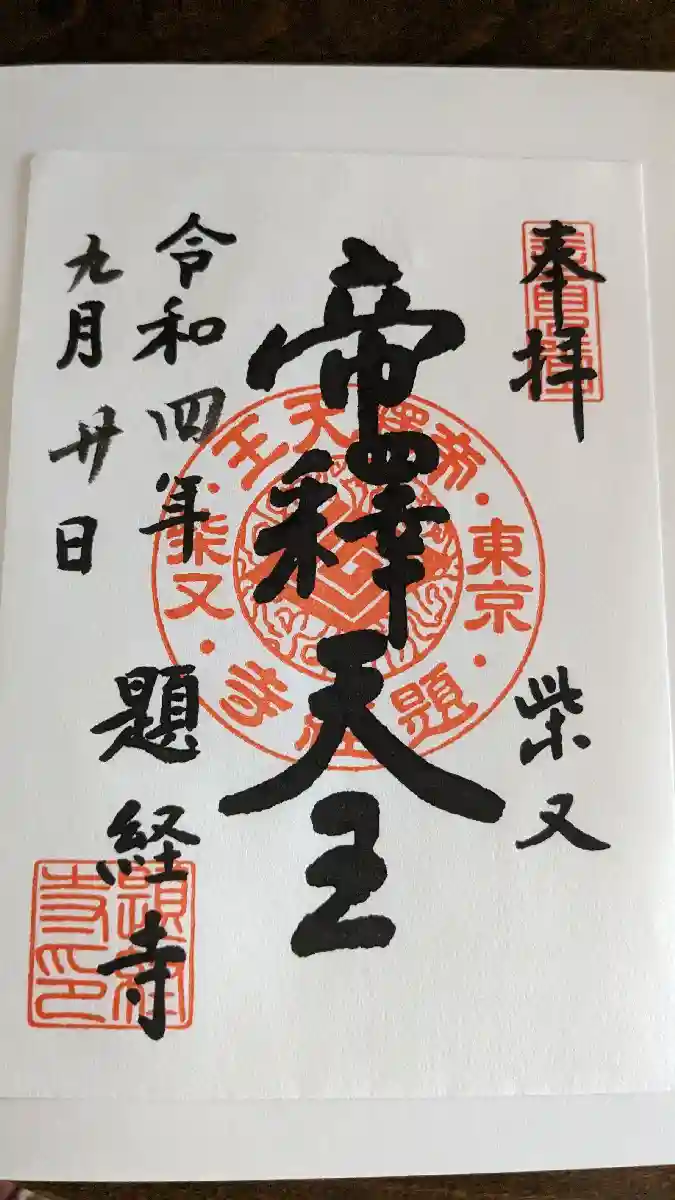 奉拝
柴又
帝釋天王
令和四年
九月廿日
題経寺
帝釋天王
東京
柴又
題経寺
題経寺印